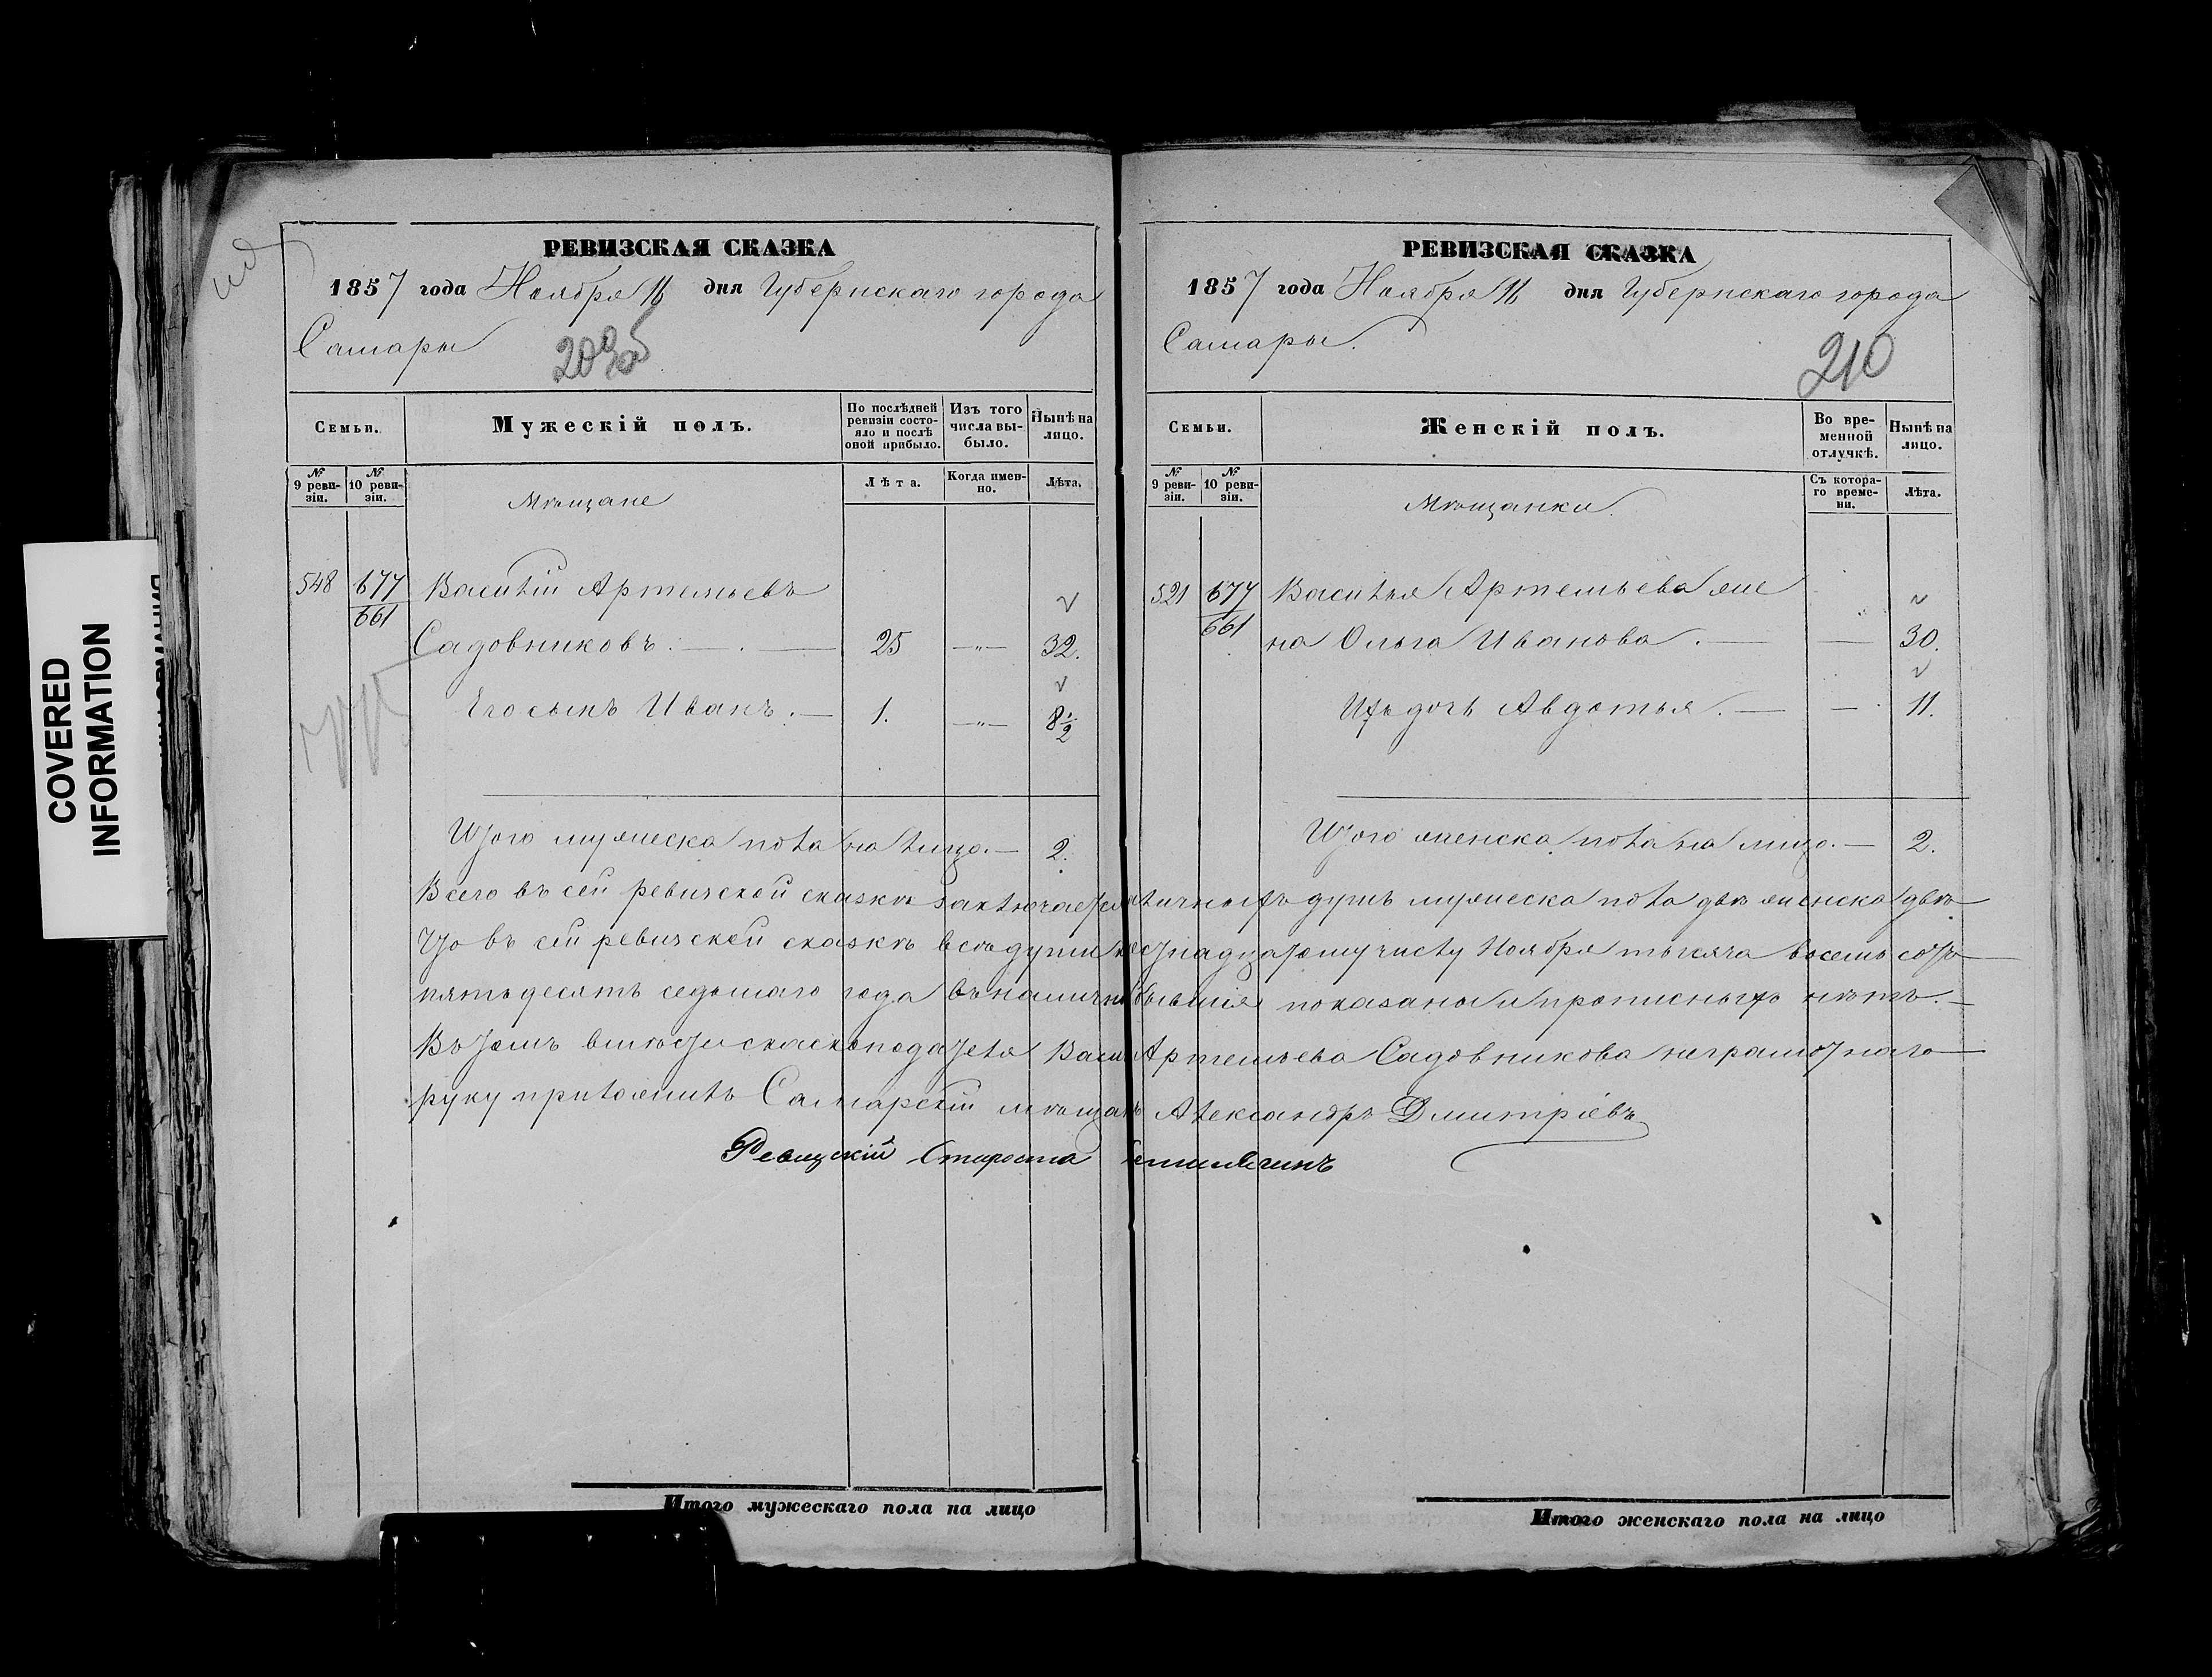 COVERED
INFORMATION
РЕВИЗСКАЯ СКАЗКА
1857 года Ноября 16 дня Губернскаго города
Самары
209 об
Семьи.
Мужескій полъ.
По послѣдней ревизіи состояло и послѣ оной прибыло.
Изъ того числа выбыло.
Нынѣ на лицо.
№ 9 ревизіи.
№ 10 ревизіи.
Мѣщане
Лѣта.
Когда именно.
Лѣта.
548 677 Василій Артемьевъ
661 Садовниковъ. 25 —"— 32.
Его сынъ Иванъ. 1. —"— 8 1/2
Итого мужеска пола на лицо. — 2.
РЕВИЗСКАЯ СКАЗКА
1857 года Ноября 16 дня Губернскаго города
Самары.
210
Семьи.
Женскій полъ.
Во временной отлучкѣ.
Нынѣ на лицо.
№ 9 ревизіи.
№ 10 ревизіи.
Мѣщанки.
Съ котораго времени.
Лѣта.
521 677 Василья Артемьева же
661 на Ольга Иванова. — — 30.
Ихъ дочь Авдотья. — — 11.
Итого женска пола на лицо. — 2.
Всего въ сей ревизской сказкѣ заключается наличныхъ душъ мужеска пола двѣ женска двѣ
Что въ сей ревизской сказкѣ всѣ души къ шестнадцатому числу Ноября тысяча восемь сотъ
пятьдесятъ седьмаго года въ наличности бывшія показаны и прописныхъ нѣтъ. —
Въ томъ вмѣсто сказкоподателя Василья Артемьева Садовникова неграмотнаго
руку приложилъ Самарскій мѣщанинъ Александръ Дмитріевъ
Ревизскій Староста
Итого мужескаго пола на лицо
Итого женскаго пола на лицо